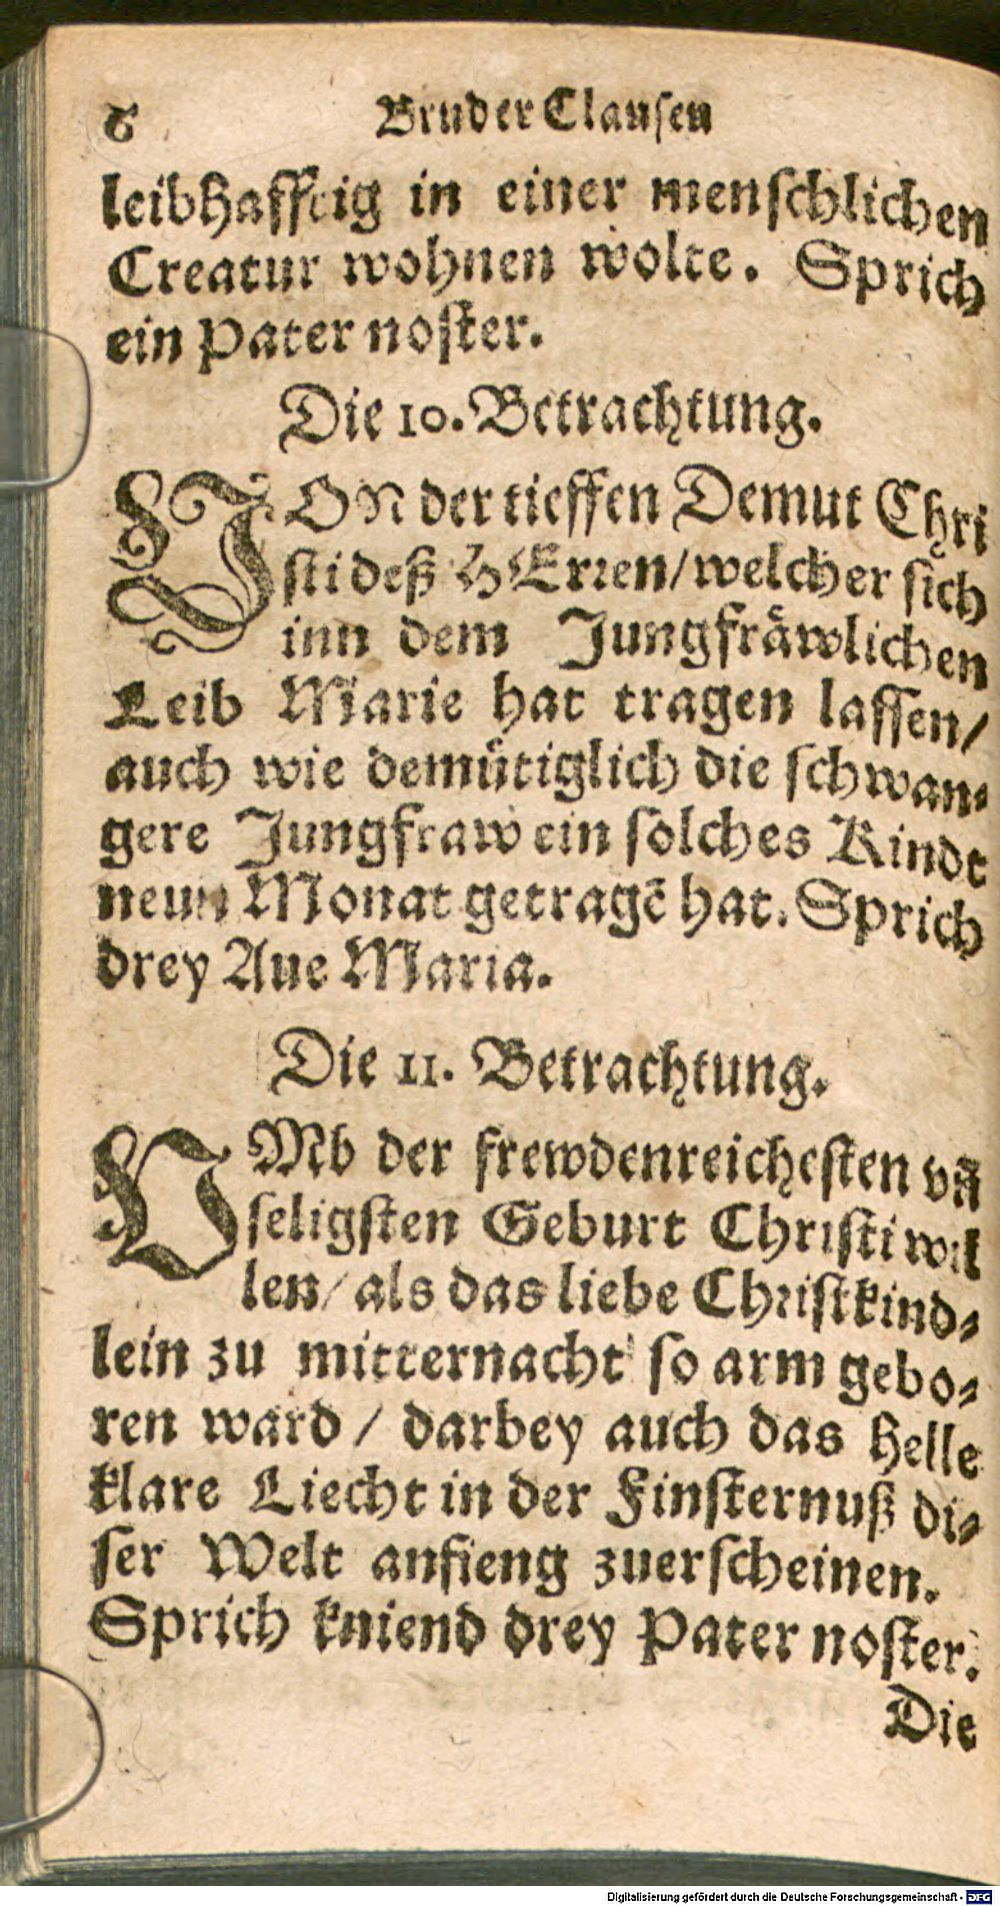 6 Bruder Clausen
leibhafftig in einer menschlichen
Creatur wohnen wolte. Sprich
ein Pater noster.
Die 10. Betrachtung.
VON der tieffen Demut Chri
sti deß HErren/ welcher sich
inn dem Jungfraͤwlichen
Leib Marie hat tragen lassen/
auch wie demuͤtiglich die schwan-
gere Jungfraw ein solches Kindt
neun Monat getragē hat. Sprich
drey Aue Maria.
Die 11. Betrachtung.
VMb der frewdenreichesten vñ
seligsten Geburt Christi wil
len/ als das liebe Christkind-
lein zu mitternacht so arm gebo-
ren ward / darbey auch das helle
klare Liecht in der Finsternuß di-
ser Welt anfieng zuerscheinen.
Sprich kniend drey Pater noster.
Die
Digitalisierung gefördert durch die Deutsche Forschungsgemeinschaft - DFG